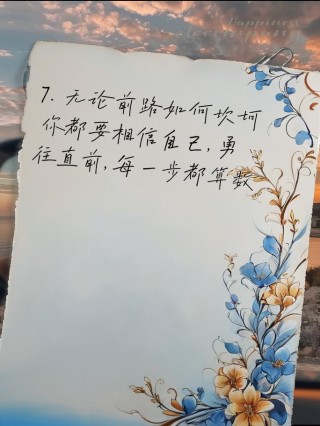 7. 无论前路如何坎坷
你都要相信自己, 勇
往直前, 每一步都算数